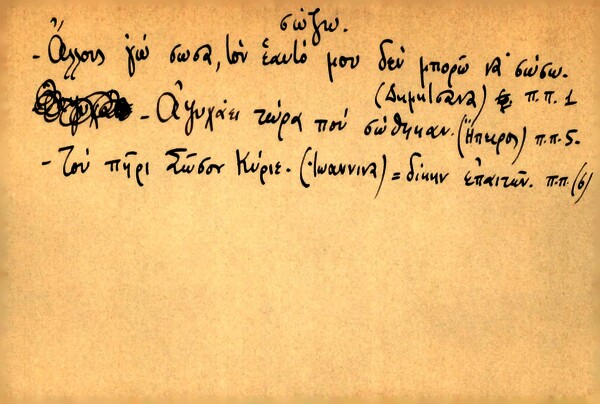 σώζω.
- Ἄλλους ἐγώ σωσα, τὸν ἑαυτό μου δέν μπορῶ νὰ σώσω.
(Δημητσάνα) π.π. 1
- Ἀγυχάει τώρα πού σώθηκαν. (Ἤπειρος) π.π. 5.
- Τοῦ πῆρι Σῶσον Κύριε. (Ἰωάννινα) = δίκην ἐπαιτῶν. π.π. (6)